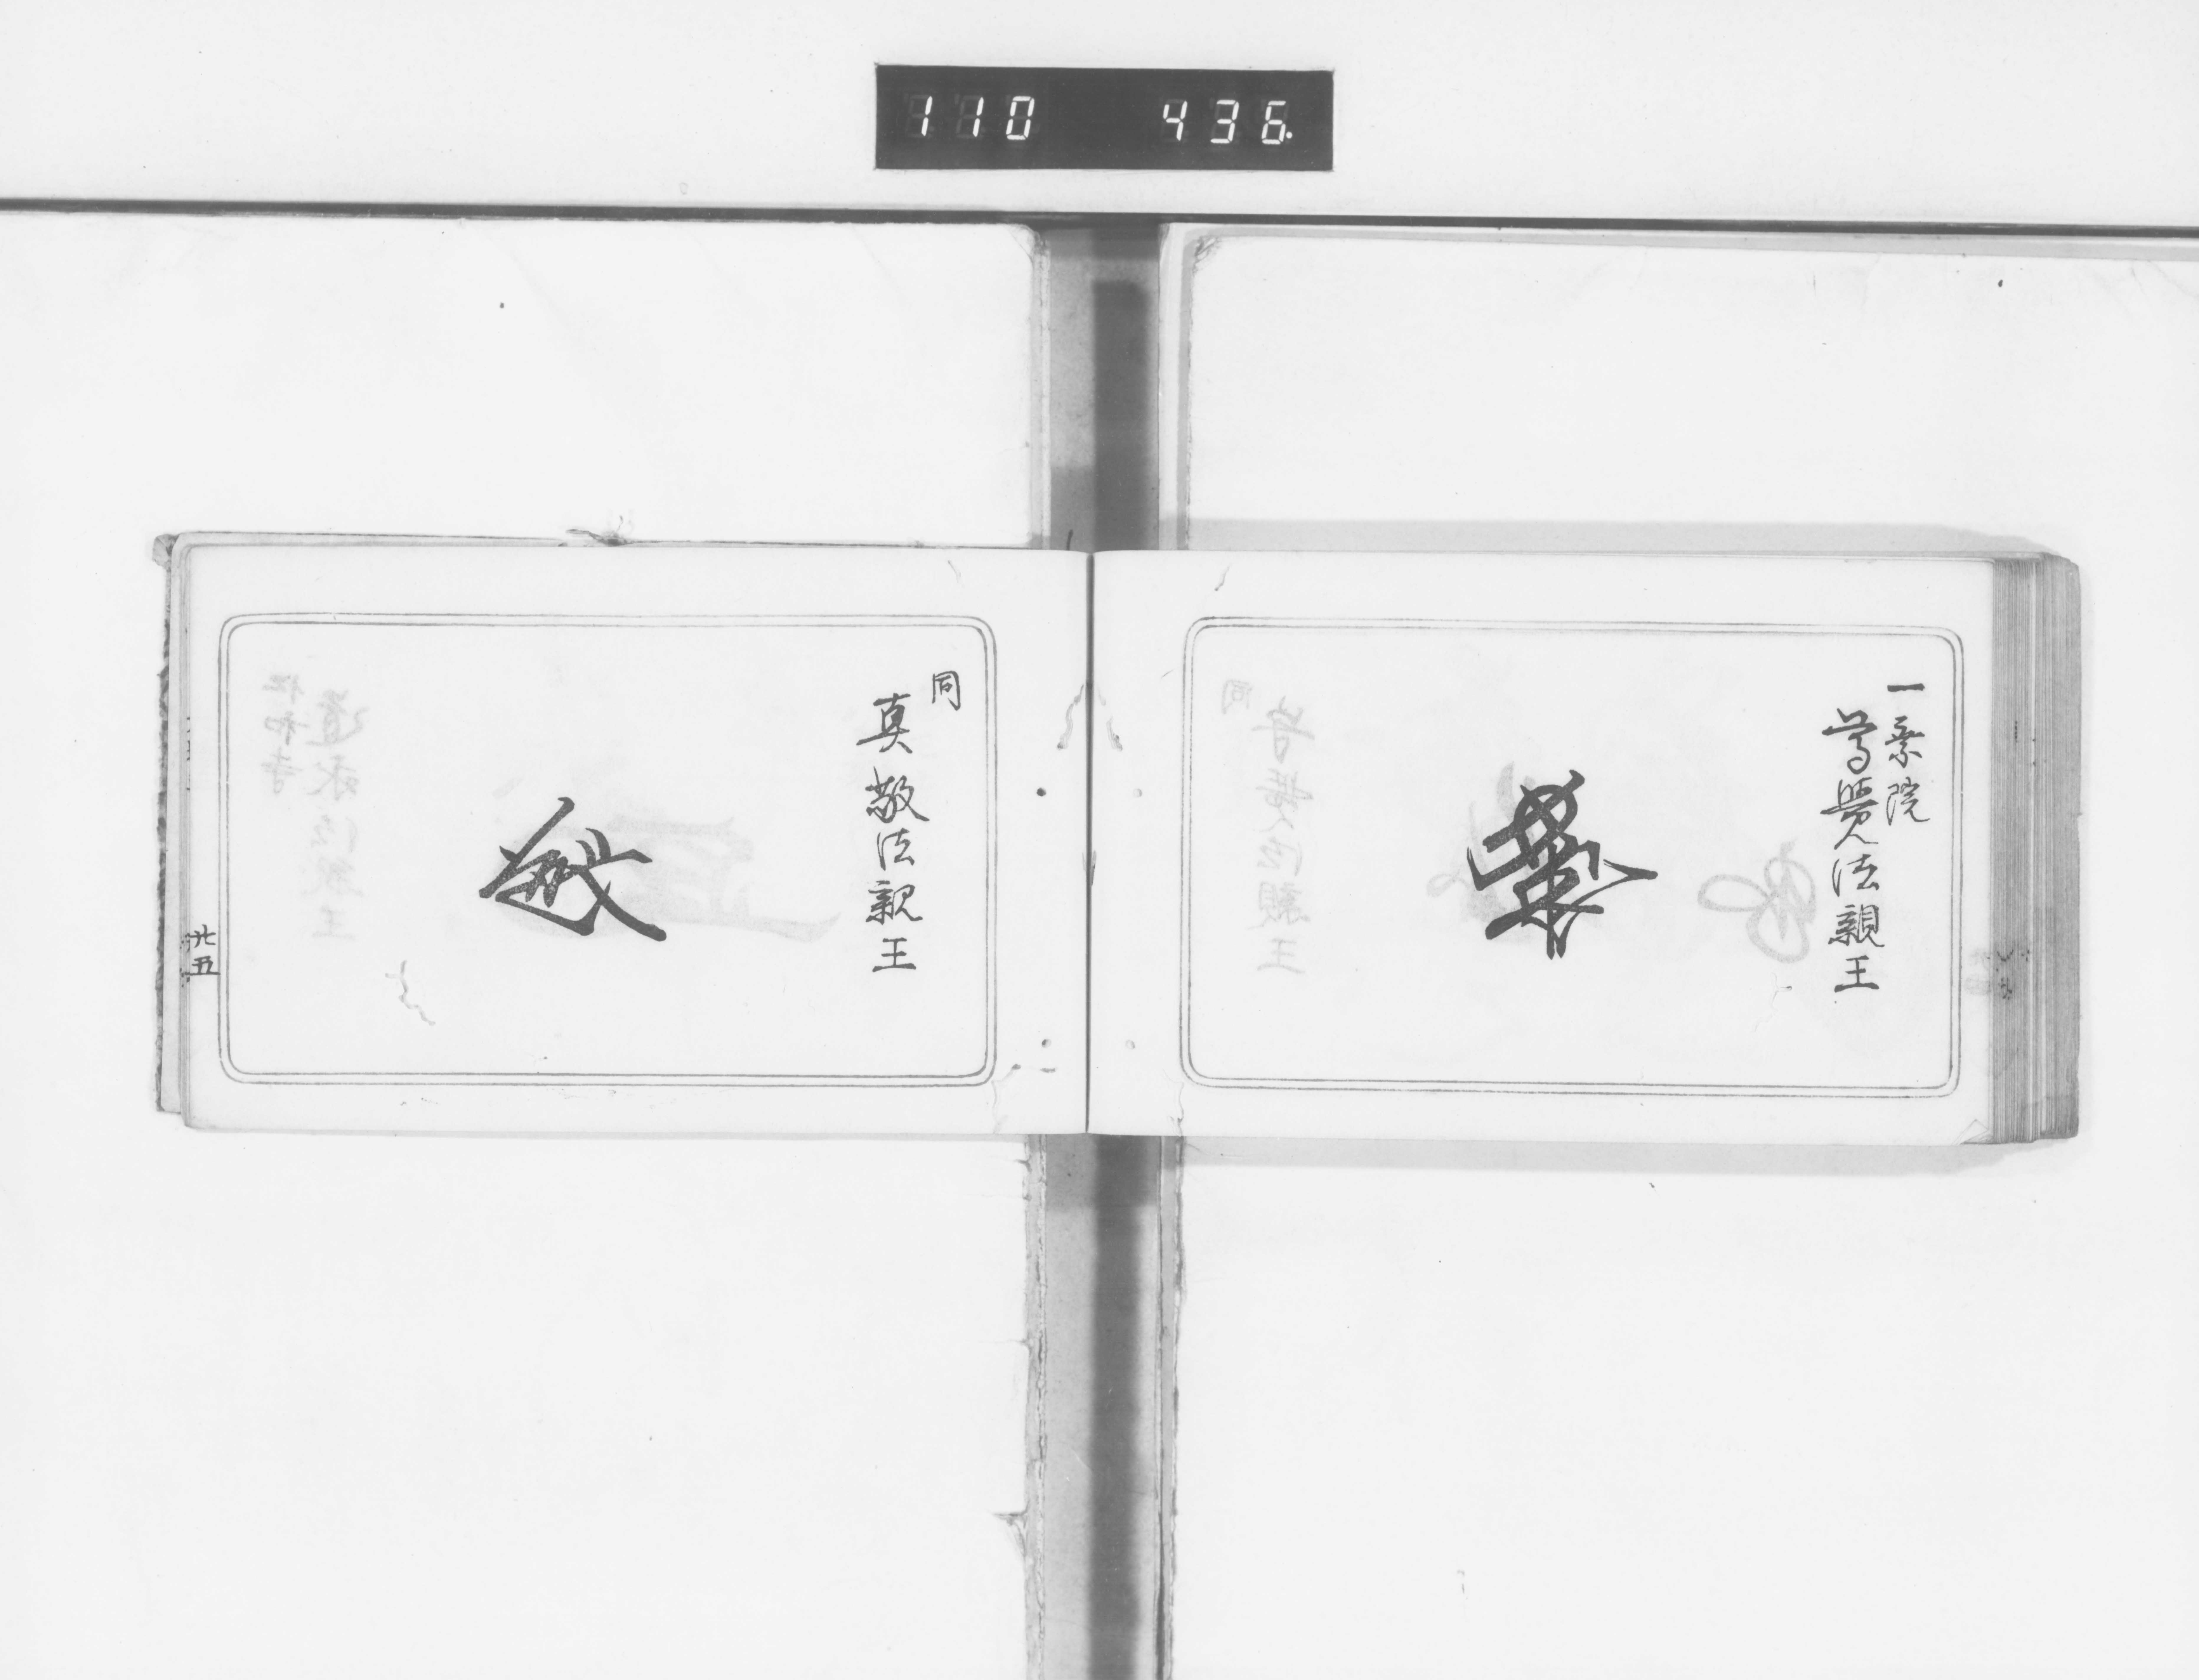 110 436
一乗院
尊覺法親王
同
真敬法親王
廿五